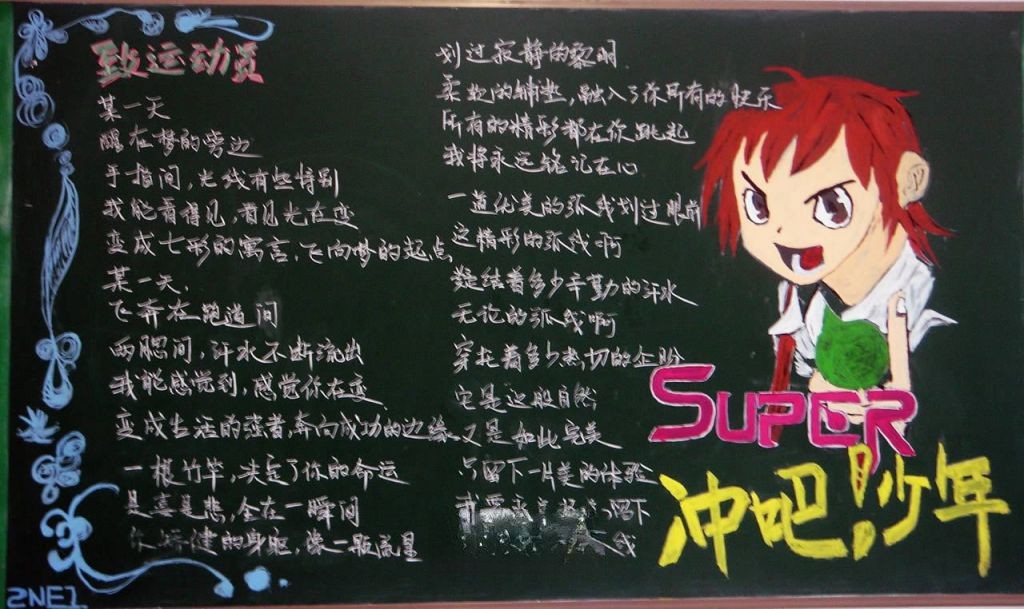 致运动员
某一天
醒在梦的旁边
手指间，光线有些特别
我能看得见，看见光在变
变成七彩的寓言，飞向梦的起点
某一天，
飞奔在跑道间
两腮间，汗水不断流出
我能感觉到，感觉你在变
变成生活的强者，奔向成功的边缘
一根竹竿，决定了你的命运
是喜是悲，全在一瞬间
你矫健的身躯，像一颗流星
划过寂静的黎明
柔软的铺垫，融入了你所有的快乐
所有的情形都在你跳起
我将永远铭记在心
一道优美的弧线划过眼前
这情形的弧线啊
凝结着多少辛勤的汗水
无论的弧线啊
穿托着多少热切的企盼
它是这般自然
又是如此完美
只留下一片美的体验
留下
线
SUPER
冲吧！少年
2NE1